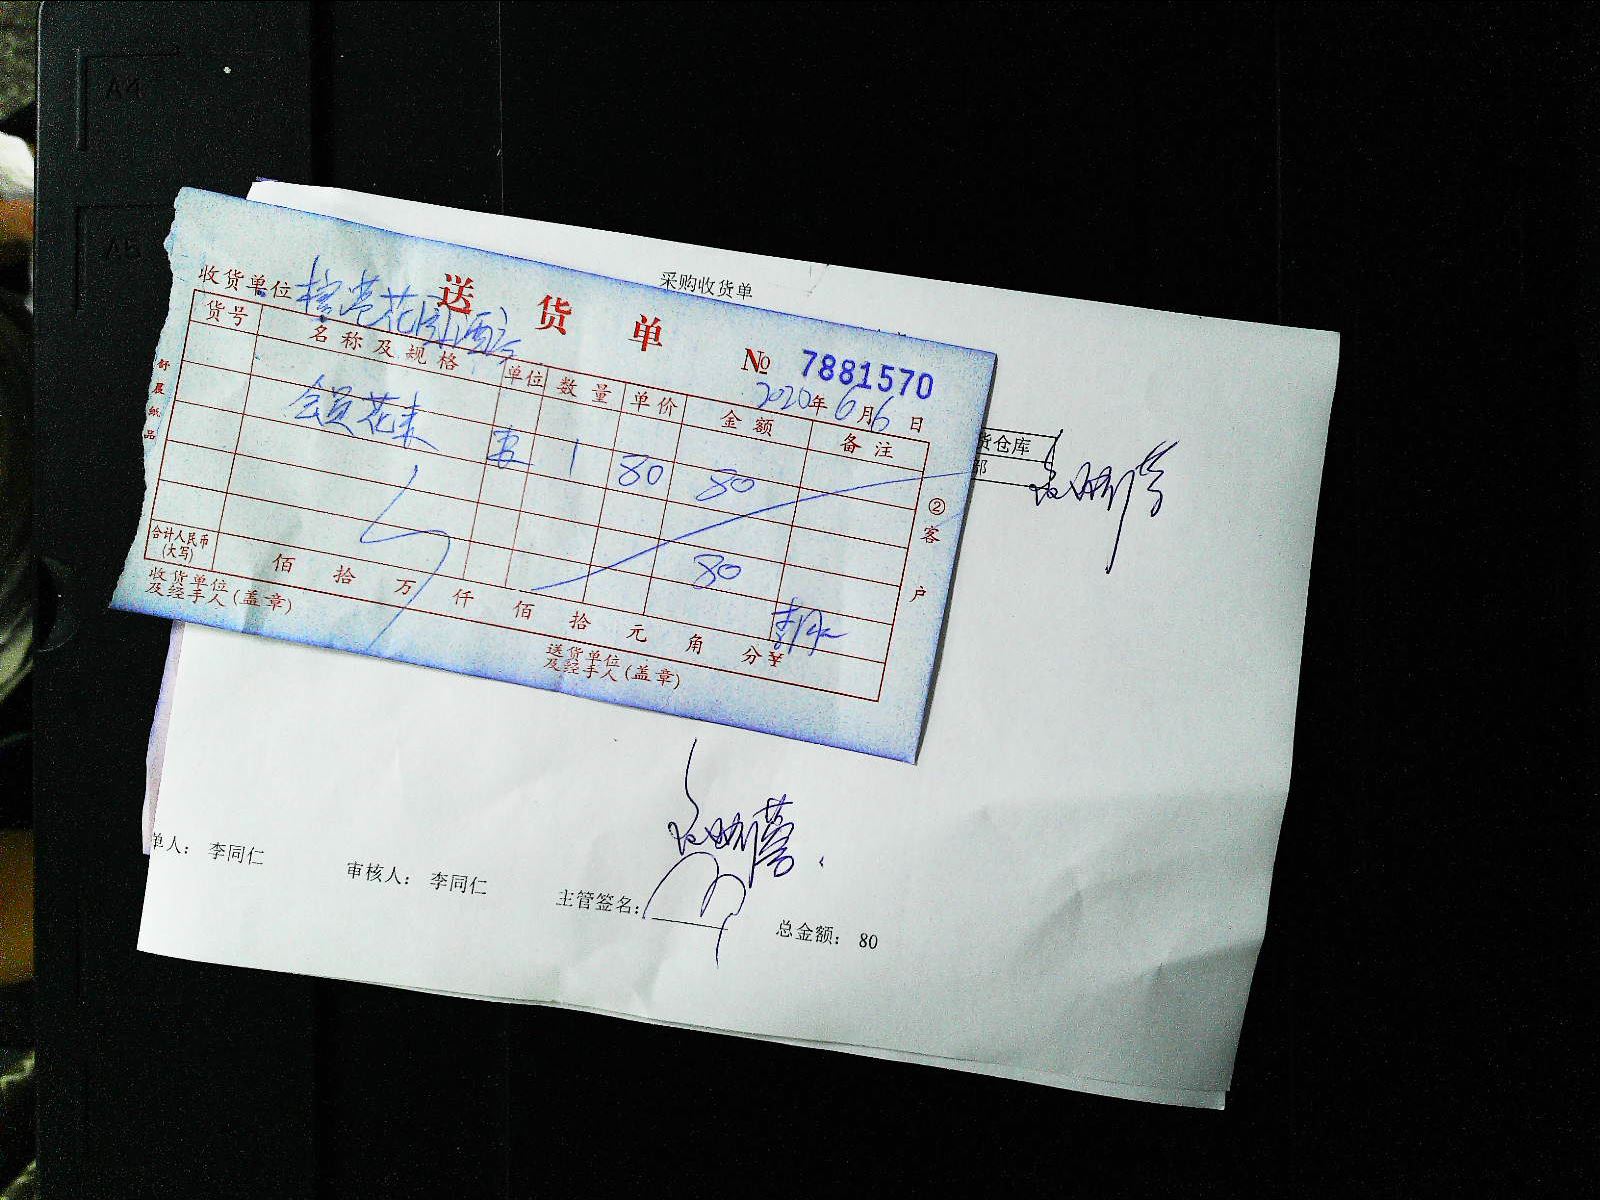 A4
A5
采购收货单
送货单
收货单位
花园酒店
№ 7881570
2020年6月6日
货号 名称及规格 单位 数量 单价 金额 备注
会员花束 束 1 80 80
80
合计人民币(大写) 佰 拾 万 仟 佰 拾 元 角 分 ¥
收货单位及经手人(盖章)
送货单位及经手人(盖章)
舒晨纸品
②客户
货仓库
部
单人: 李同仁
审核人: 李同仁
主管签名:
总金额: 80